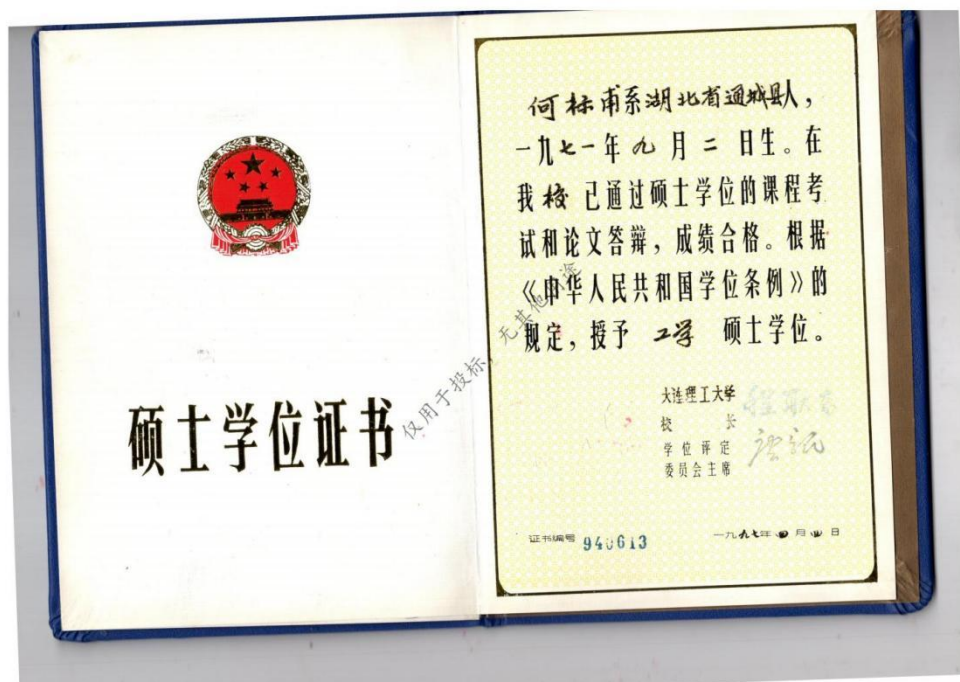 硕士学位证书
何标甫系湖北省通城县人，
一九七一年九月二日生。在
我校已通过硕士学位的课程考
试和论文答辩，成绩合格。根据
《中华人民共和国学位条例》的
规定，授予 工学 硕士学位。
大连理工大学
校长
学位评定
委员会主席
证书编号 940613
一九九七年四月四日
仅用于投标，无其他用途